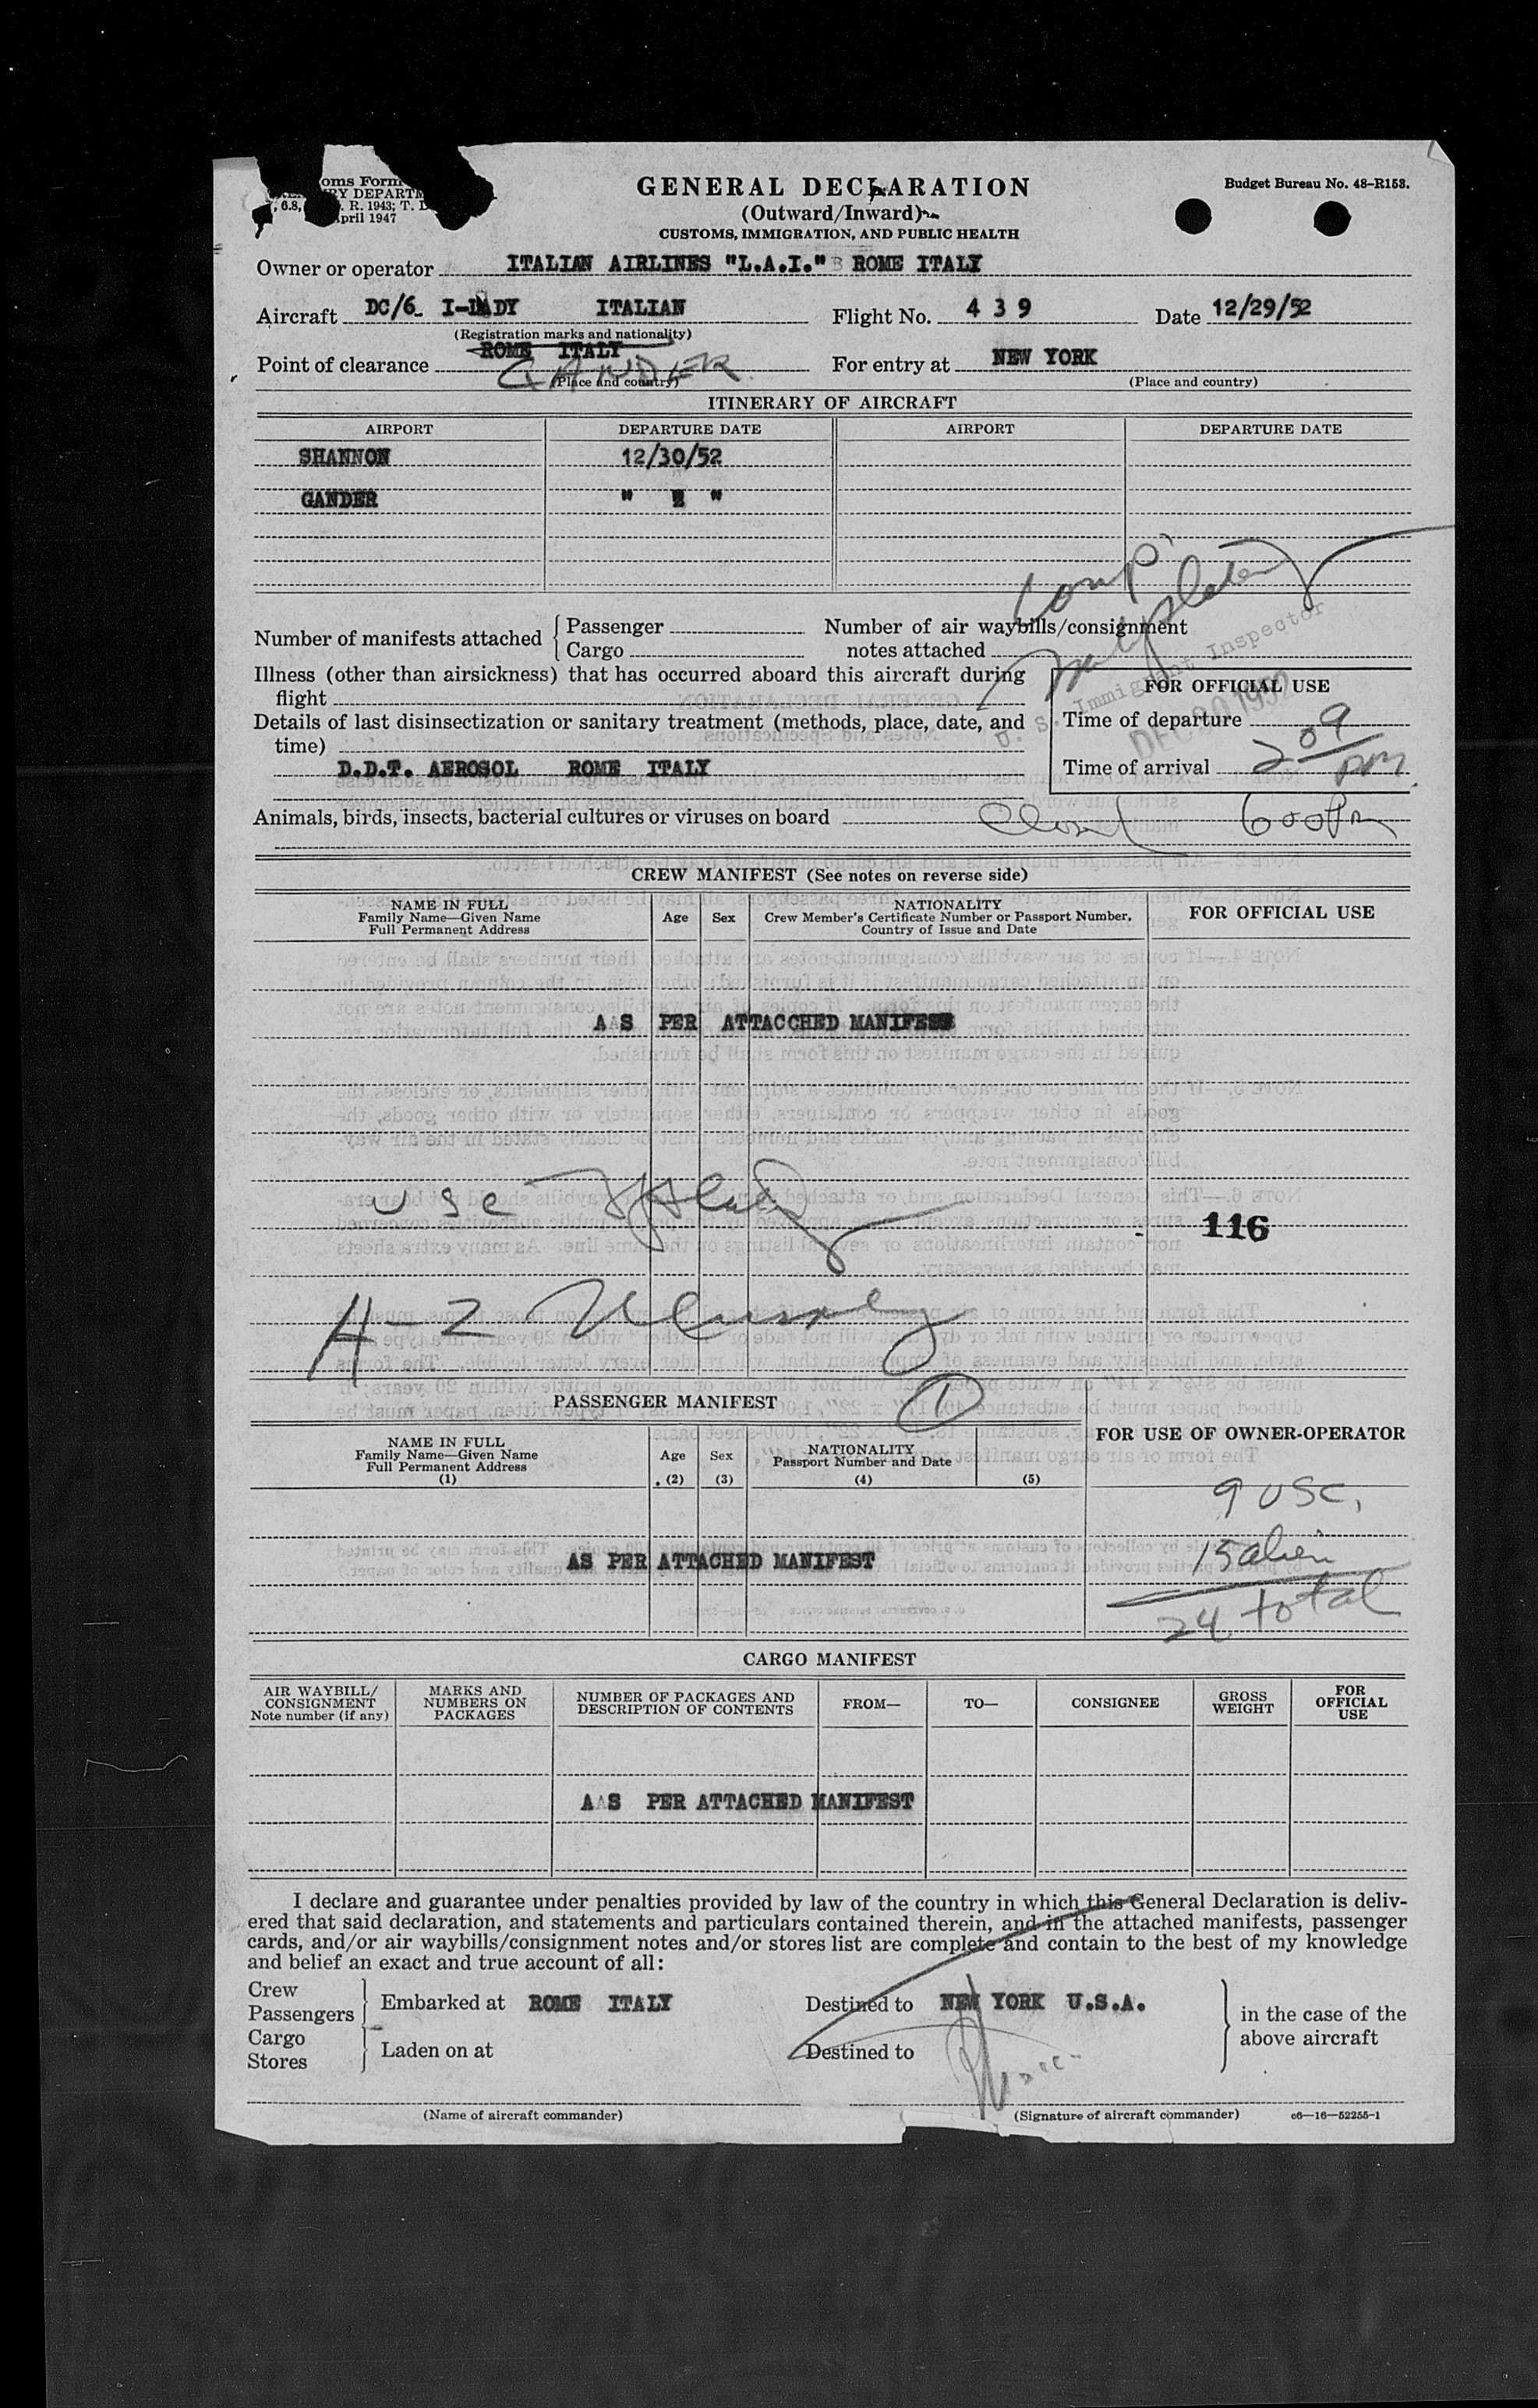 oms Form
RY DEPARTM
, 6.8, . R. 1943; T. D
pril 1947
Budget Bureau No. 48-R153.
GENERAL DECLARATION
(Outward/Inward)
CUSTOMS, IMMIGRATION, AND PUBLIC HEALTH
Owner or operator ITALIAN AIRLINES "L.A.I." ROME ITALY
Aircraft DC/6 I-LADY ITALIAN Flight No. 4 3 9 Date 12/29/52
(Registration marks and nationality)
Point of clearance ROME ITALY GANDER For entry at NEW YORK
(Place and country) (Place and country)
ITINERARY OF AIRCRAFT
AIRPORT DEPARTURE DATE AIRPORT DEPARTURE DATE
SHANNON 12/30/52
GANDER " " "
Comp
Number of manifests attached { Passenger
Cargo
Number of air waybills/consignment
notes attached
U. S. Immigrant Inspector
DEC 30 1952
Illness (other than airsickness) that has occurred aboard this aircraft during
flight
Details of last disinsectization or sanitary treatment (methods, place, date, and
time)
D.D.T. AEROSOL ROME ITALY
FOR OFFICIAL USE
Time of departure
Time of arrival 2 09 PM
Animals, birds, insects, bacterial cultures or viruses on board 600 Pm
CREW MANIFEST (See notes on reverse side)
NAME IN FULL
Family Name—Given Name
Full Permanent Address
Age
Sex
NATIONALITY
Crew Member's Certificate Number or Passport Number,
Country of Issue and Date
FOR OFFICIAL USE
A S PER ATTACCHED MANIFES
USC
116
A-2
1
PASSENGER MANIFEST
NAME IN FULL
Family Name—Given Name
Full Permanent Address
(1)
Age
(2)
Sex
(3)
NATIONALITY
Passport Number and Date
(4)
(5)
FOR USE OF OWNER-OPERATOR
9 USC,
15 alien
24 total
AS PER ATTACHED MANIFEST
CARGO MANIFEST
AIR WAYBILL/
CONSIGNMENT
Note number (if any)
MARKS AND
NUMBERS ON
PACKAGES
NUMBER OF PACKAGES AND
DESCRIPTION OF CONTENTS
FROM—
TO—
CONSIGNEE
GROSS
WEIGHT
FOR
OFFICIAL
USE
A S PER ATTACHED MANIFEST
I declare and guarantee under penalties provided by law of the country in which this General Declaration is deliv-
ered that said declaration, and statements and particulars contained therein, and in the attached manifests, passenger
cards, and/or air waybills/consignment notes and/or stores list are complete and contain to the best of my knowledge
and belief an exact and true account of all:
Crew
Passengers } Embarked at ROME ITALY Destined to NEW YORK U.S.A.
Cargo
Stores } Laden on at Destined to
in the case of the
above aircraft
(Name of aircraft commander) (Signature of aircraft commander) c6—16—52255-1